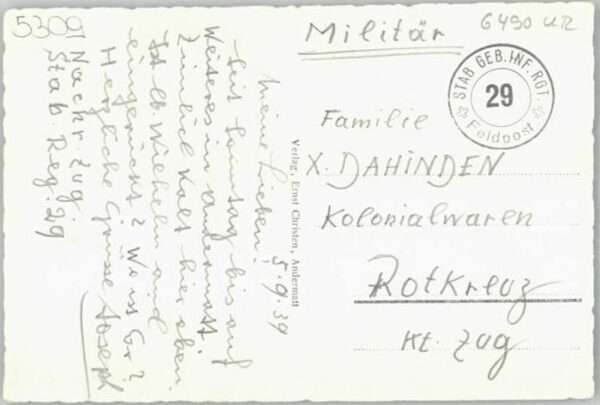 5309
6490 UR
Militär
STAB GEB. INF. RGT.
29
Feldpost
Familie
X. DAHINDEN
Kolonialwaren
Rotkreuz
Kt. Zug
Verlag, Ernst Christen, Andermatt
5.9.39
Meine Lieben!
Seit Samstag bis auf
Weiteres in Andermatt.
Ziemlich kalt hier oben.
Ist b. Wilhelm auch
eingerückt? Wo ist Er?
Herzliche Grüsse Joseph
Nachr. Zug.
Stab Reg. 29